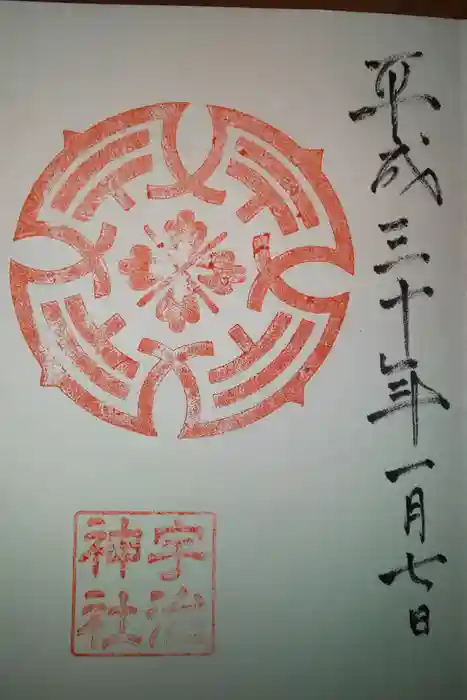 平成三十年一月七日
宇治
神社